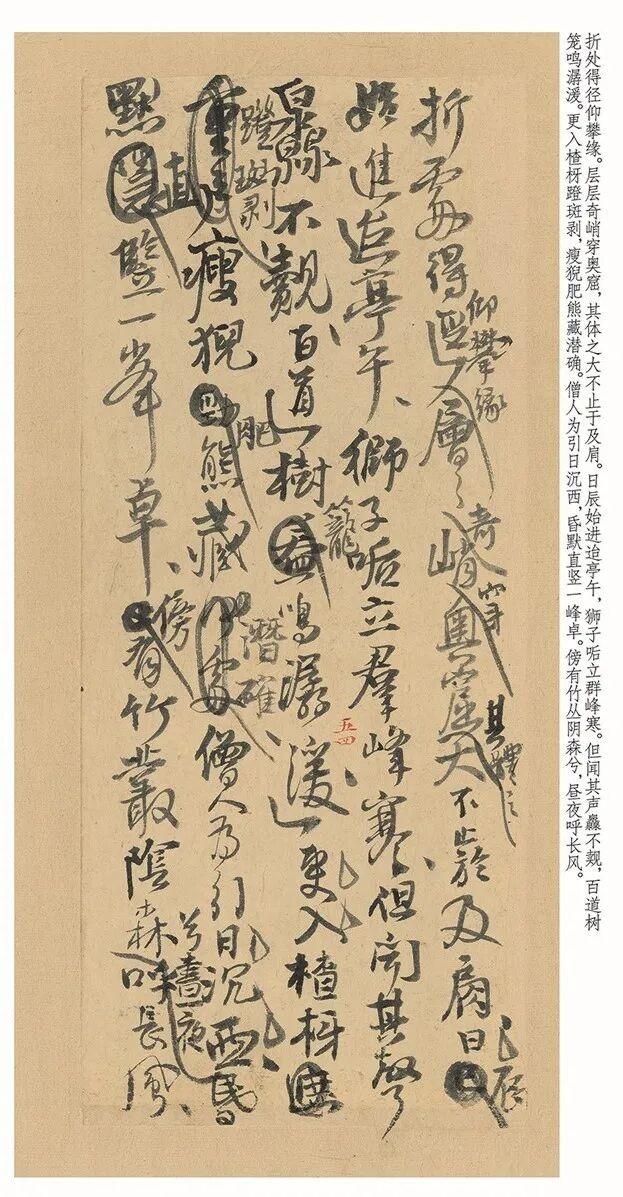 折处得径仰攀缘。层层奇峭穿奥窟，其体之大不止于及肩。日辰始进迨亭午，狮子咶立群峰寒。但闻其声不觌，百道树
笼鸣潺湲。更入楂枒蹬斑剥，瘦猊肥熊藏潜确。僧人为引日沉西，昏默直竖一峰卓。傍有竹丛阴森兮，昼夜呼长风。
折處得逕仰攀緣層々奇峭穿奧窟其體之大不止於及肩日辰
始進迨亭午獅子咶立羣峰寒但聞其聲
不覿百道樹籠鳴潺湲更入楂枒
蹬斑剥瘦猊肥熊藏潛確僧人為引日沉西昏
默直豎一峯卓傍有竹叢陰森兮晝夜呼長風
五四